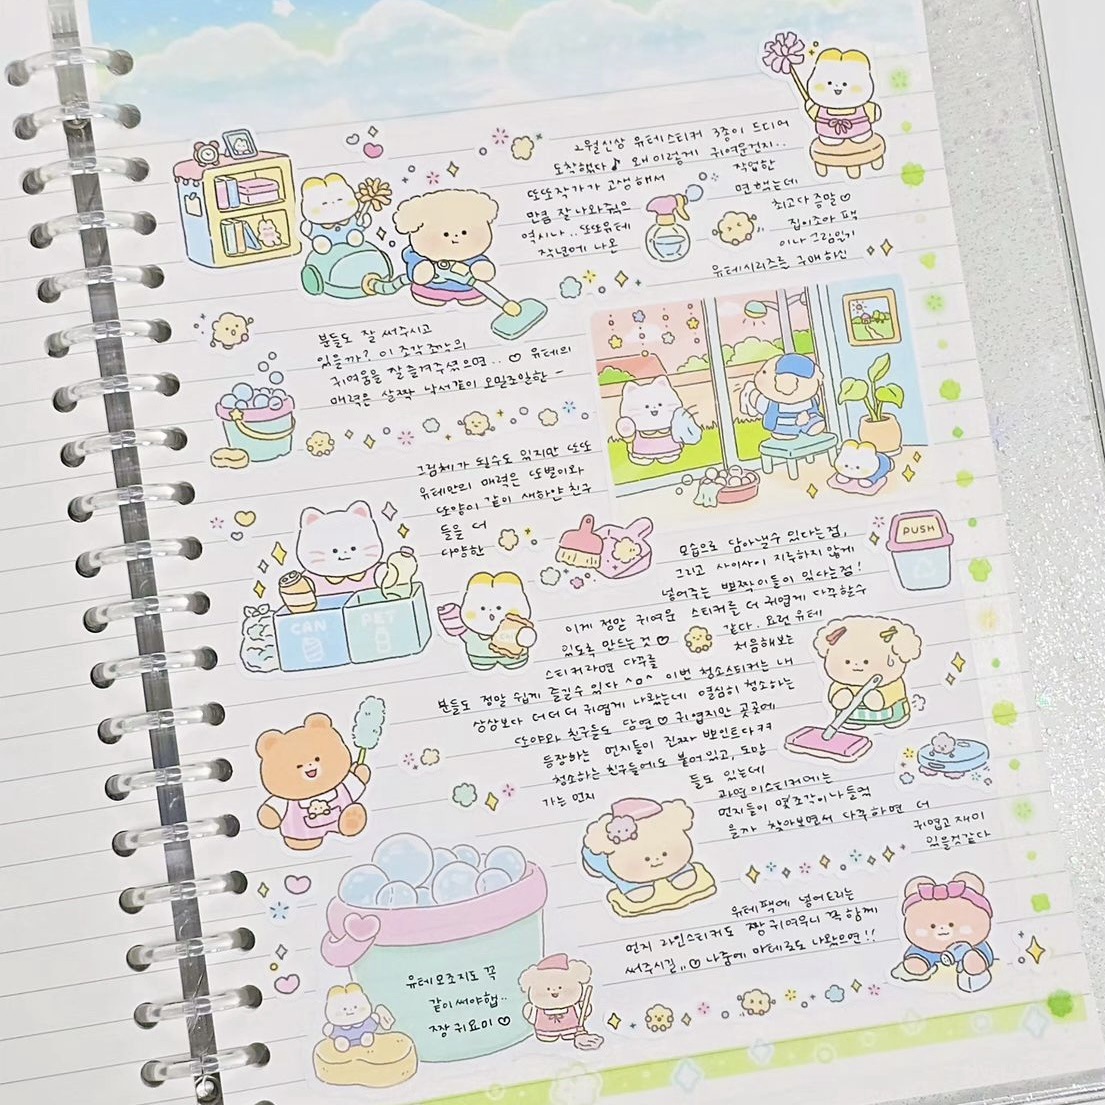 2월신상 유테스티커 3종이 드디어
도착했다♪ 왜이렇게 귀여운건지..
또또작가가 고생해서 작업한
만큼 잘나와줘욱 면했는데
역시나.. 또또유테 최고다 증말♡
작년에 나온 집이좋아 팩
이나 그림일기
유테시리즈를 구매하신
분들도 잘 써주시고
있을까? 이 조각조각의
귀여움을 잘즐겨주셨으면..♡ 유테의
매력은 살짝 낙서같이 오밀조밀한 -
그림체가 될수도 있지만 또또
유테만의 매력은 또별이와
또양이 같이 새하얀 친구
들을 더
다양한
모습으로 담아낼수 있다는점,
그리고 사이사이 지루하지 않게
넣어주는 뽀짝이들이 있다는점!
이게 정말 귀여운 스티커를 더 귀엽게 다꾸할수
있도록 만드는 것♡ 같다. 요런 유테
스티커라면 다꾸를 처음해보는
분들도 정말 쉽게 즐길수 있다 ^o^ 이번 청소스티커는 내
상상보다 더더더 귀엽게 나왔는데 열심히 청소하는
또야와 친구들도 당연♡ 귀엽지만 곳곳에
등장하는 먼지들이 진짜 뽀인트다ㅋㅋ
청소하는 친구들에도 붙어있고, 도망
가는 먼지 들도 있는데
과연 이스티커에는
먼지들이 몇조각이나 들었
을까 찾아보면서 다꾸하면 더
귀엽고 재미
있을것같다
유테팩에 넣어드리는
먼지 라인스티커도 짱귀여우니 꼭 함께
써주시길..♡ 나중에 마테로도 나왔으면!!
유테모조지도 꼭
같이써야햅..
짱 귀요미♡
CAN
PET
PUSH